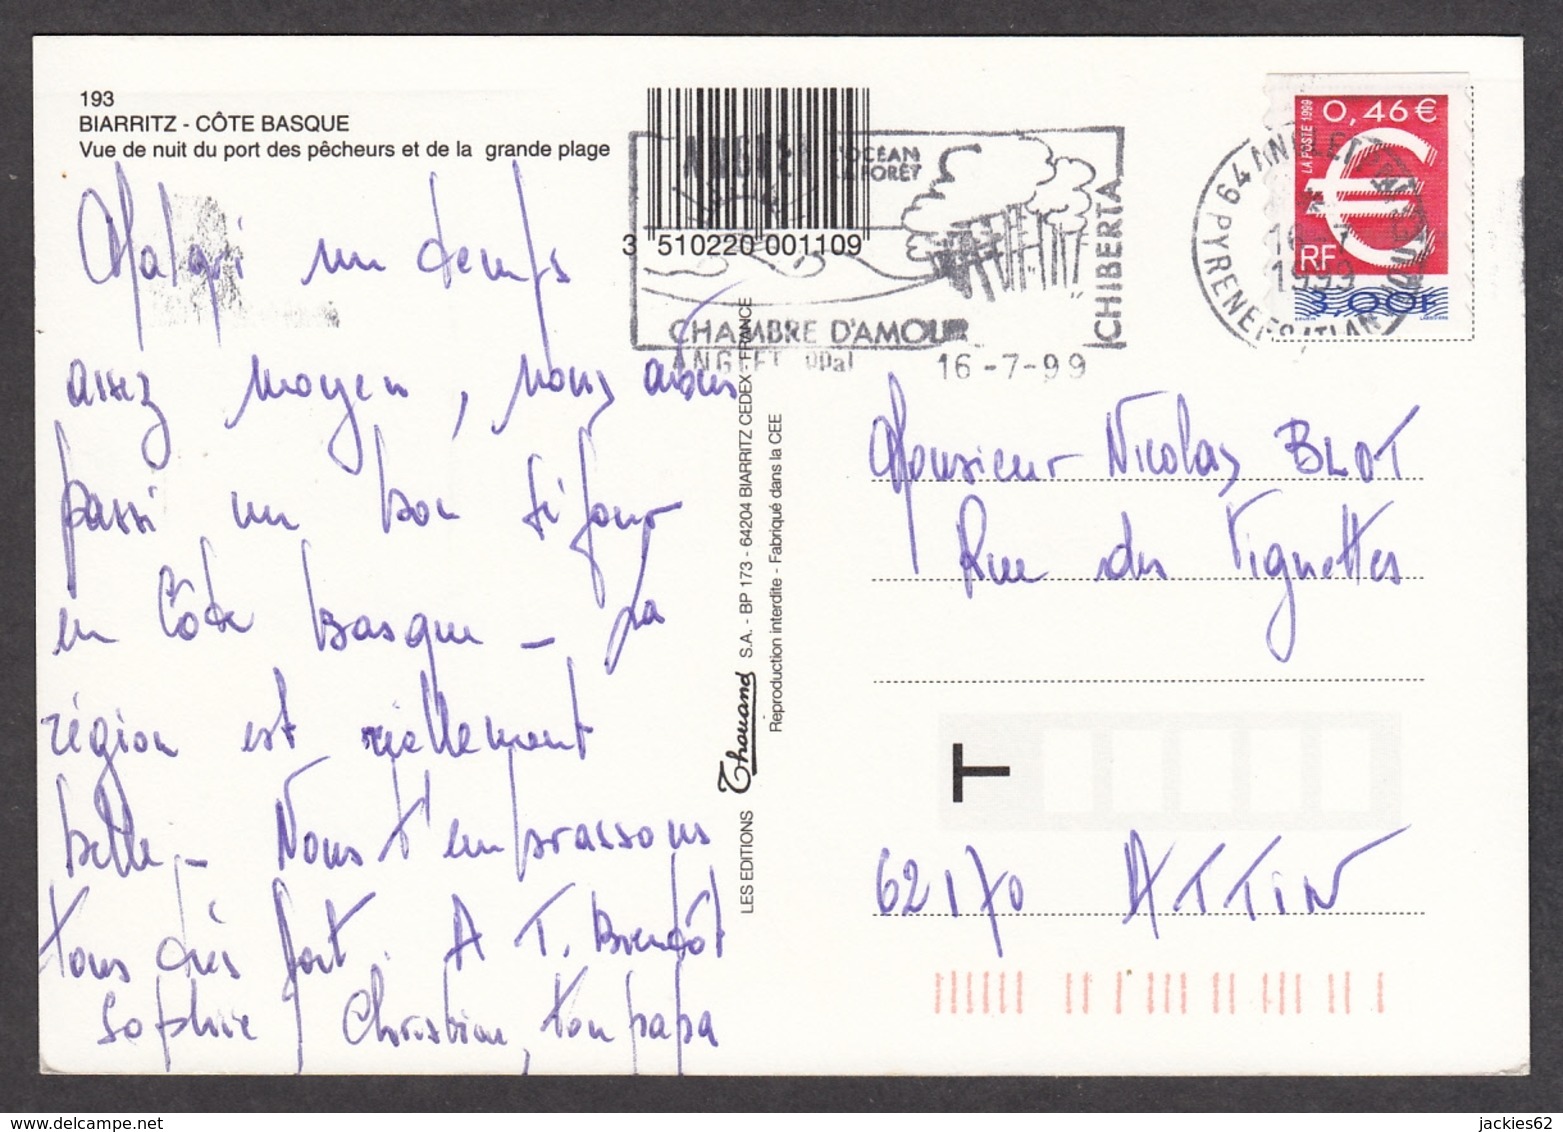 193
BIARRITZ - CÔTE BASQUE
Vue de nuit du port des pêcheurs et de la grande plage
Malgré un temps
assez moyen, nous avons
passé un bon séjour
en Côte basque - La
région est réellement
belle - Nous t'embrassons
tous très fort. A T. Bientôt
Sophie, Christian, ton papa
3 510220 001109
ANGLET L'OCEAN
LA FORÊT
CHIBERTA
CHAMBRE D'AMOUR
ANGLET ppal 16-7-99
LES EDITIONS Thouand S.A. - BP 173 - 64204 BIARRITZ CEDEX - FRANCE
Reproduction interdite - Fabriqué dans la CEE
64 ANGLET
16-7
1999
PYRENEES ATLAN
0,46 €
LA POSTE 1999
RF
3,00F
Monsieur Nicolas BLOT
Rue des Vignettes
T
62170 ATTIN
jackies62